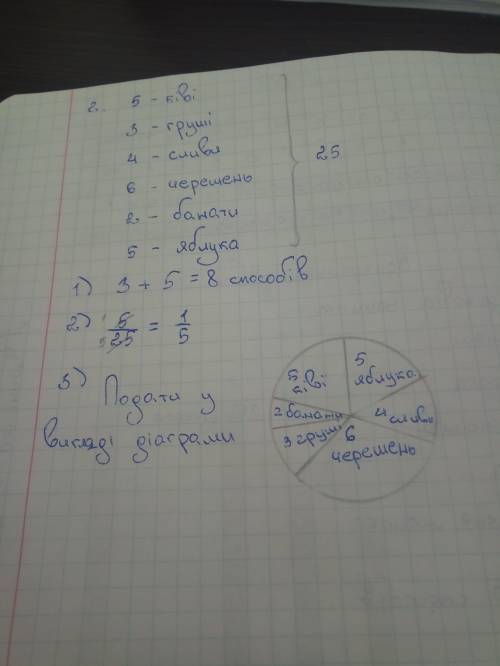 2. 5 - ківі
3 - груші
4 - сливи
6 - черешень
2 - банани
5 - яблука
25
1) 3 + 5 = 8 способів
2) 5/25 = 1/5
3) Подати у
вигляді діаграми
5 ківі
5 яблука
2 банани
4 сливи
3 груші
6 черешень